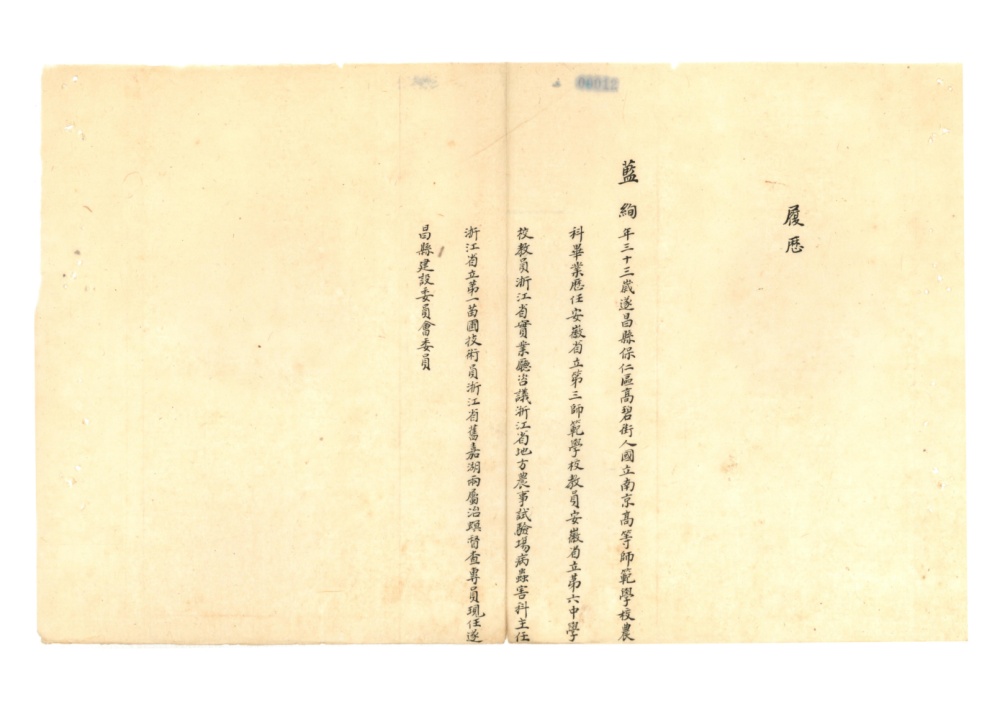 履歷
藍絢年三十三歲遂昌縣保仁區高碧街人國立南京高等師範學校農
科畢業歷任安徽省立第三師範學校教員安徽省立第六中學
校教員浙江省實業廳咨議浙江省地方農事試驗場病蟲害科主任
浙江省立第一苗圃技術員浙江省舊嘉湖兩屬治螟督查專員現任遂
昌縣建設委員會委員